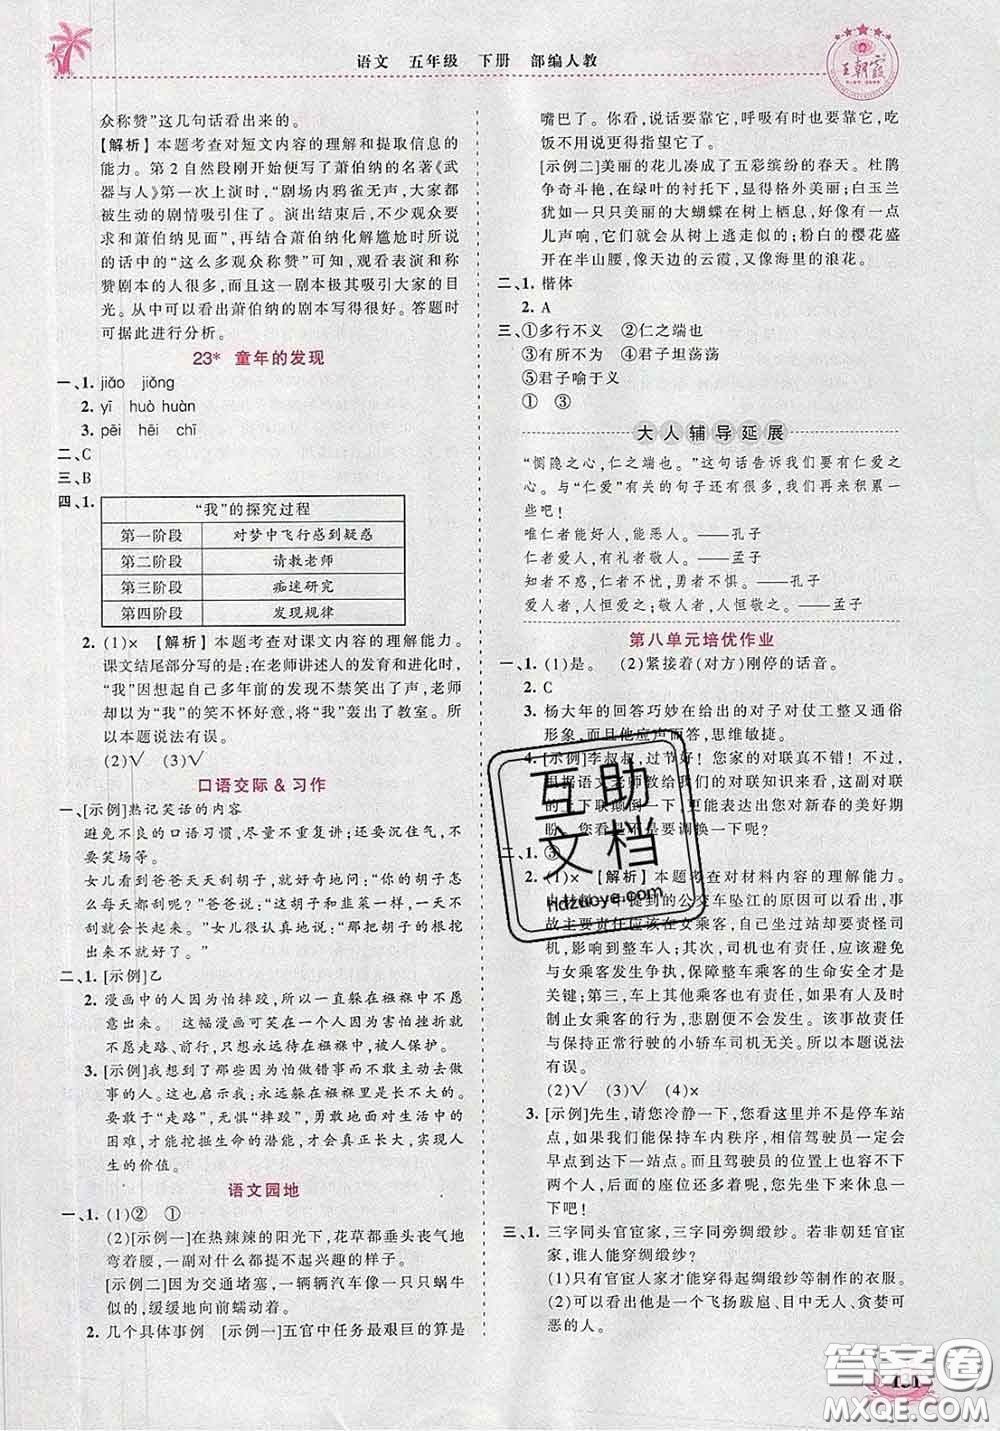 语文 五年级 下册 部编人教
王朝霞
众称赞”这几句话看出来的。
【解析】本题考查对短文内容的理解和提取信息的
能力。第2自然段刚开始便写了萧伯纳的名著《武
器与人》第一次上演时，“剧场内鸦雀无声，大家都
被生动的剧情吸引住了。演出结束后，不少观众要
求和萧伯纳见面”，再结合萧伯纳化解尴尬时所说
的话中的“这么多观众称赞”可知，观看表演和称
赞剧本的人很多，而且这一剧本极其吸引大家的目
光。从中可以看出萧伯纳的剧本写得很好。答题时
可据此进行分析。
23* 童年的发现
一、1. jiǎo jiǒng
2. yī huò huàn
3. pēi hēi chī
二、C
三、B
四、1.
“我”的探究过程
第一阶段 对梦中飞行感到疑惑
第二阶段 请教老师
第三阶段 痴迷研究
第四阶段 发现规律
2. (1)× 【解析】本题考查对课文内容的理解能力。
课文结尾部分写的是：在老师讲述人的发育和进化时，
“我”因想起自己多年前的发现不禁笑出了声，老师
却以为“我”的笑不怀好意，将“我”轰出了教室。所
以本题说法有误。
(2)√ (3)√
口语交际 & 习作
一、[示例]熟记笑话的内容
避免不良的口语习惯，尽量不重复讲；还要沉住气，不
要笑场等。
女儿看到爸爸天天刮胡子，就好奇地问：“你的胡子怎
么每天都刮呢？”爸爸说：“胡子和韭菜一样，一天不
刮就会长起来。”女儿很认真地说：“那把胡子的根挖
出来不就好了。”
二、1. [示例]乙
2. 漫画中的人因为怕摔跤，所以一直躲在襁褓中不愿
意出来。 这幅漫画可笑在一个人因为害怕挫折就
不愿走路、前行，只想躲在襁褓中，被人保护。
3. [示例]我想到了那些因为怕做错事而不敢主动去做
事的人。这也启示我：永远躲在襁褓里是长不大的，
我们要敢于“走路”，无惧“摔跤”，面对生活中的困
的困难，才能挖掘生命的潜能，才能真正长大，实现人
生的价值。
语文园地
一、1. (1)② ①
(2)[示例一]在热辣辣的阳光下，花草都垂头丧气地
弯着腰，一副对什么都提不起兴趣的样子。
[示例二]因为交通堵塞，一辆辆汽车像一只只蜗牛
似的，缓缓地向前蠕动着。
2. 几个具体事例 [示例一]五官中任务最艰巨的算是
嘴巴了。你看，说话要靠它，呼吸有时也要靠它，吃
饭不用说更指望它了。
[示例二]美丽的花儿凑成了五彩缤纷的春天。杜鹃
争奇斗艳，在绿叶的衬托下，显得格外美丽；白玉兰
犹如一只只美丽的大蝴蝶在树上栖息，好像一有点
儿声响，它们就会从树上逃走似的；粉白的樱花盛
开在半山腰，像天边的云霞，又像海里的浪花。
二、1. 楷体
2. A
三、①多行不义 ②仁之端也
③有所不为 ④君子坦荡荡
⑤君子喻于义
① ③
大人辅导延展
“恻隐之心，仁之端也。”这句话告诉我们要有仁爱之
心。与“仁爱”有关的句子还有很多，我们再来积累一
些吧！
唯仁者能好人，能恶人。——孔子
仁者爱人，有礼者敬人。——孟子
知者不惑，仁者不忧，勇者不惧。——孔子
爱人者，人恒爱之；敬人者，人恒敬之。——孟子
第八单元培优作业
一、1. (1)是。 (2)紧接着(对方)刚停的话音。
2. C
3. 杨大年的回答巧妙在给出的对子对仗工整又通俗
形象，而且他应声而答，思维敏捷。
4. [示例]李叔叔，过节好！您家的对联真不错！不过，
根据语文老师教给我们的对联知识来看，这副对联
的上下联颠倒一下，更能表现您对新春的美好期
盼。您看是不是要调换一下呢？
二、1. ③
2. (1)× 【解析】本题考查对材料内容的理解能力。
提到的公交车坠江的原因可以看出，事
故主要责任应该在女乘客，自己坐过站却要骂司
机，影响到整车人；其次，司机也有责任，应该避免
与女乘客发生争执，保障整车乘客的生命安全才是
关键；第三，车上其他乘客也有责任，如果他们及时
制止女乘客的行为，悲剧便不会发生。该事故责任
与保持正常行驶的小轿车司机无关。所以本题说法
有误。
(2)√ (3)√ (4)×
3. [示例]先生，请您冷静一下，您看这里并不是停车站
点，如果我们能保持车内秩序，相信驾驶员一定会
早点到达下一站点。而且驾驶员的正常行驶也需要
一个安静的环境。我的座位让给您，您先坐下休息一
下吧！
三、1. 三字同头官宦家，三字同旁绸缎纱。若非朝廷官宦
家，谁人能穿绸缎纱？
(1)只有官宦人家才能穿起绸缎纱等制作的衣服。
(2)可以看出他是一个飞扬跋扈、目中无人、贪婪可
恶的官员。
互助
文档
hdzuoye.com
答案圈
MXQE.COM